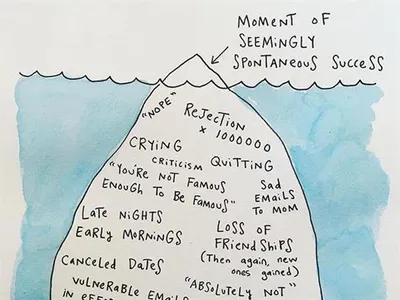 MOMENT OF
SEEMINGLY
SPONTANEOUS SUCCESS
"NOPE"
REJECTION
x 1000000
CRYING
CRITICISM
QUITTING
"YOU'RE NOT FAMOUS
ENOUGH TO BE FAMOUS"
SAD
EMAILS
TO MOM
LATE NIGHTS
EARLY MORNINGS
LOSS OF
FRIENDSHIPS
(Then again, new
ones gained)
CANCELED DATES
"ABSOLUTELY NOT"
VULNERABLE EMAILS